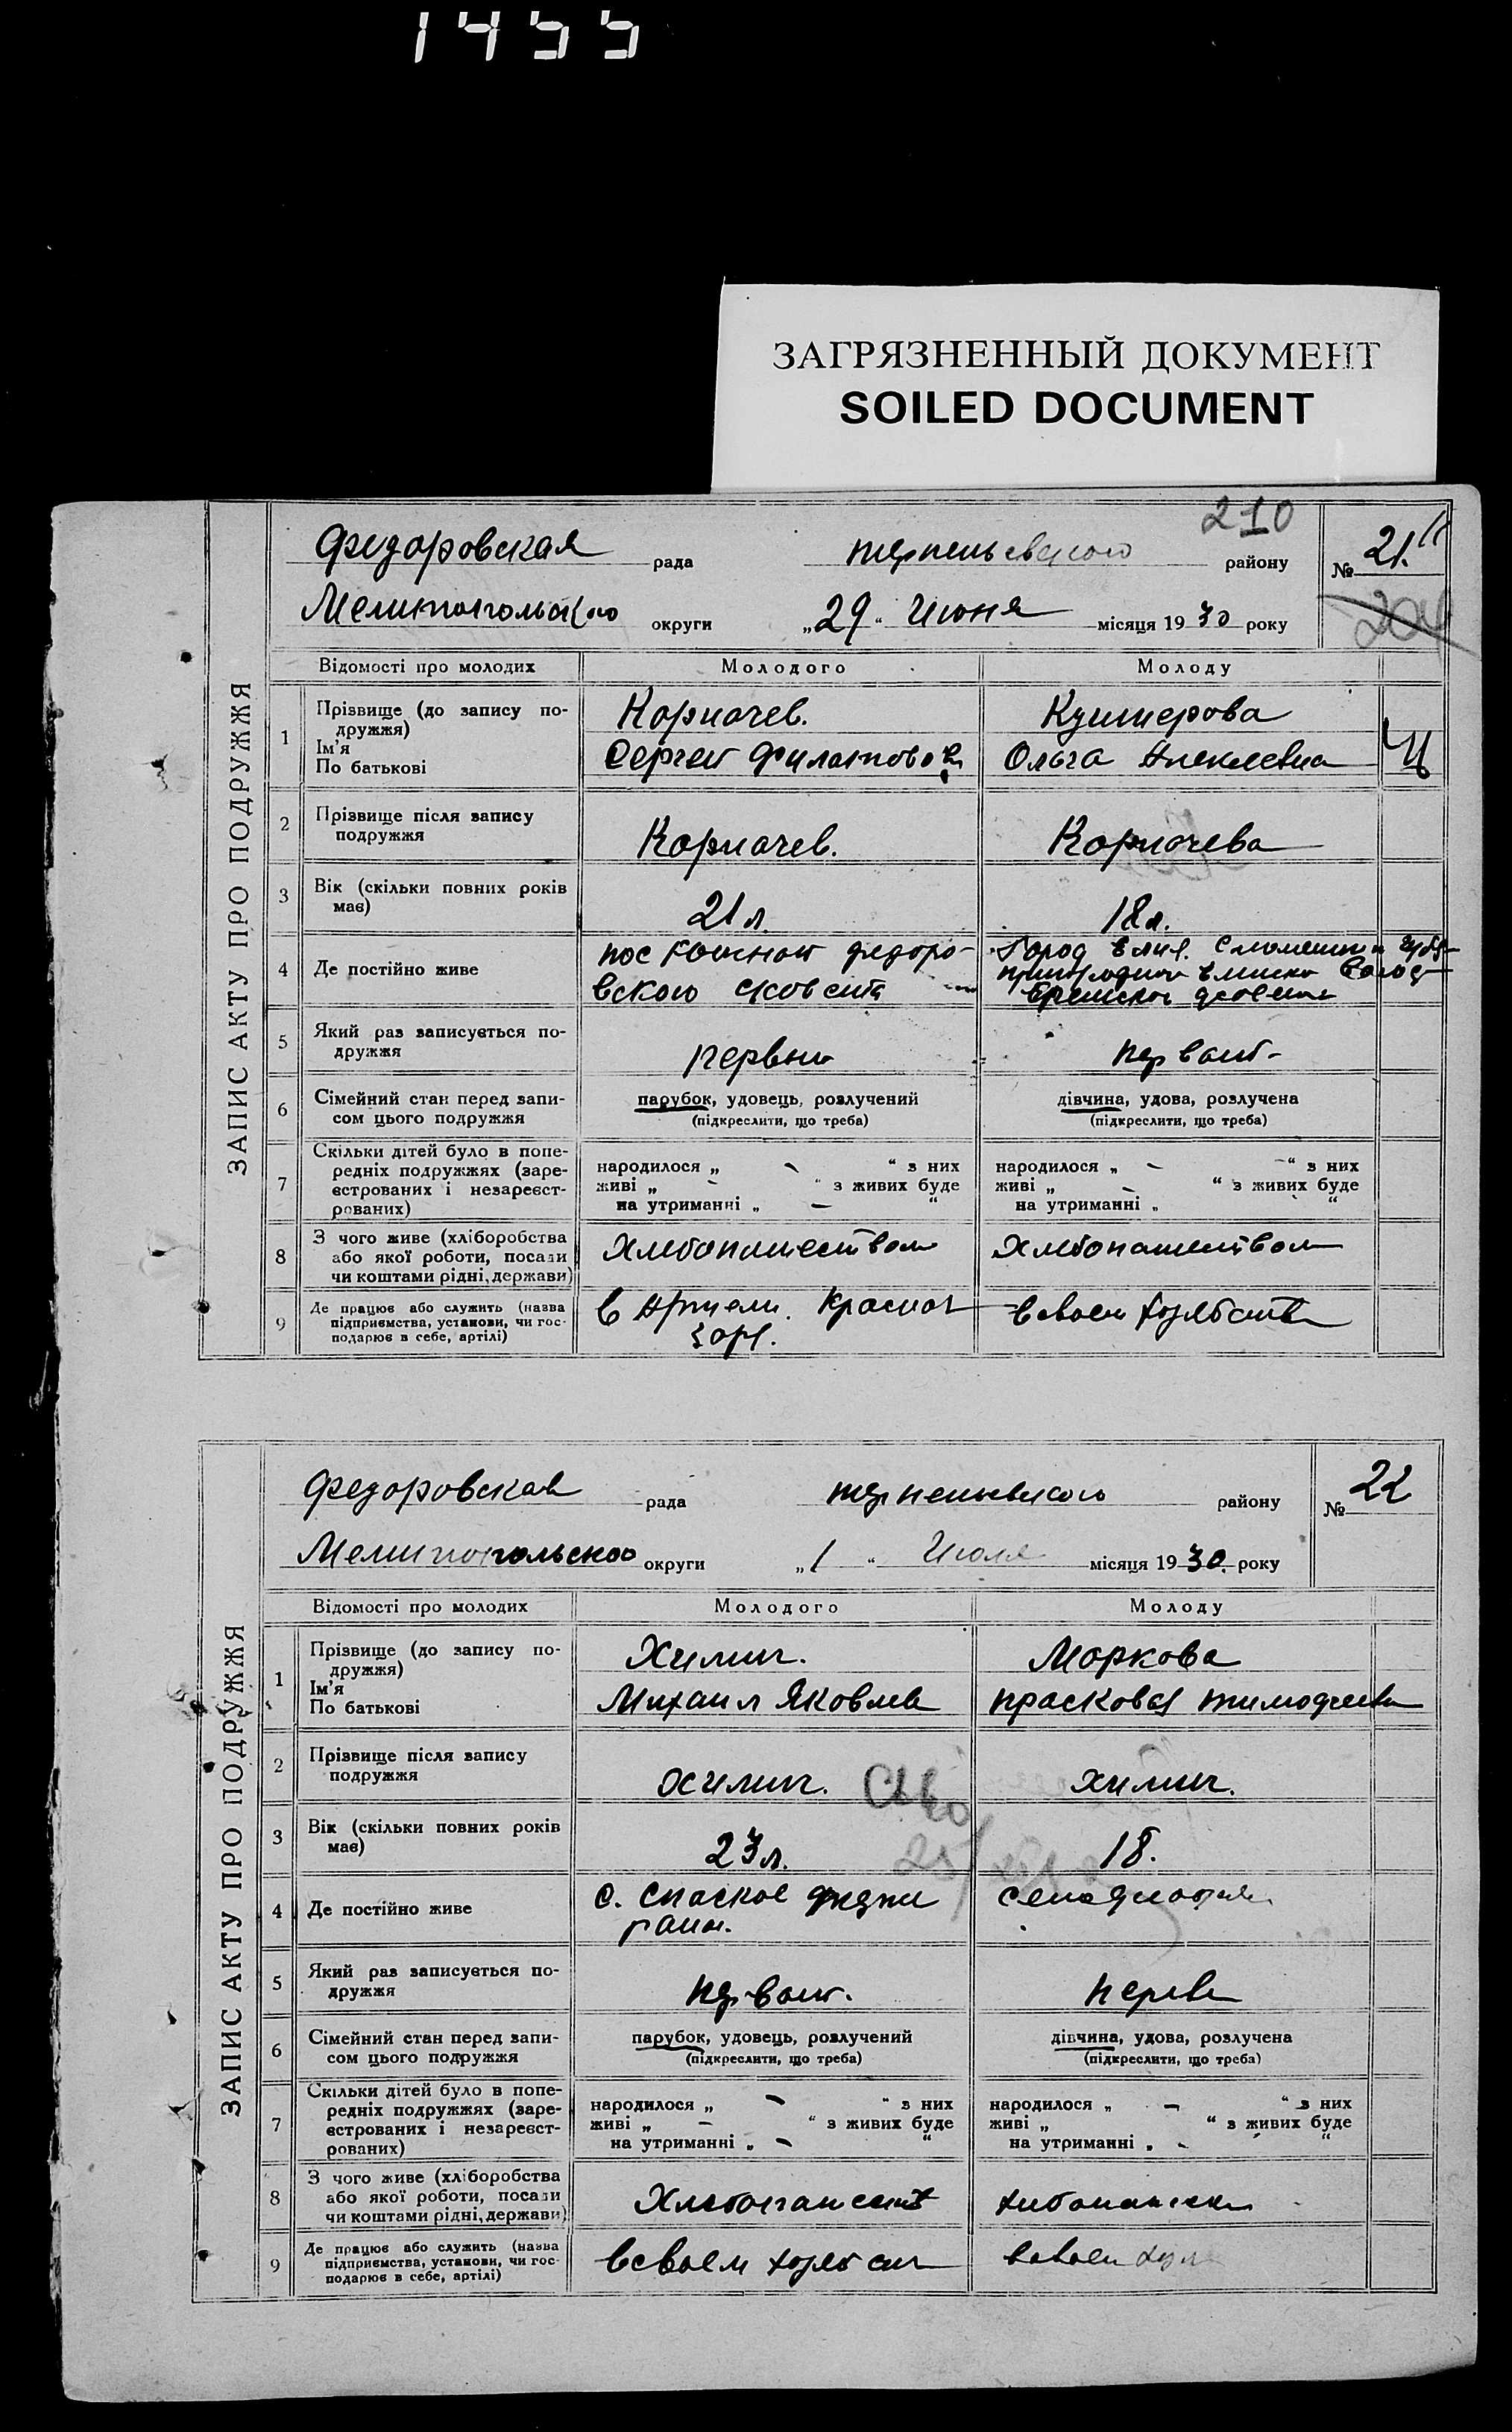 1455
ЗАГРЯЗНЕННЫЙ ДОКУМЕНТ
SOILED DOCUMENT
210
ЗАПИС АКТУ ПРО ПОДРУЖЖЯ
Федоровская рада терпеньевского району № 21.
204
Мелитопольского округи „29“ Июня місяця 1930 року
Відомості про молодих Молодого Молоду
1 Прізвище (до запису по-
дружжя)
Ім'я
По батькові
Корначев.
Сергей Филатов
Кушнерова
Ольга
Ц
2 Прізвище після запису
подружжя
Корначев. Корначева
3 Вік (скільки повних років
має)
21 л. 18 л.
4 Де постійно живе
пос федоро-
вского
Город
5 Який раз записується по-
дружжя
6 Сімейний стан перед запи-
сом цього подружжя
парубок, удовець, розлучений
(підкреслити, що треба)
дівчина, удова, розлучена
(підкреслити, що треба)
7 Скільки дітей було в попе-
редніх подружжях (заре-
єстрованих і незареєст-
рованих)
народилося „ - “ з них
живі „ - “ з живих буде
на утриманні „ - “
народилося „ - “ з них
живі „ - “ з живих буде
на утриманні „ “
8 З чого живе (хліборобства
або якої роботи, посади
чи коштами рідні, держави)
Хлебопашеством Хлебопашеством
9 Де працює або служить (назва
підприємства, установи, чи гос-
подарює в себе, артілі)
в Артели Красная
зоря.
в своем
ЗАПИС АКТУ ПРО ПОДРУЖЖЯ
Федоровская рада терпеньевского району № 22
Мелитопольского округи „1“ Июля місяця 1930. року
Відомості про молодих Молодого Молоду
1 Прізвище (до запису по-
дружжя)
Ім'я
По батькові
Химич.
Михаил Яковлев
Маркова
прасковя тимофеев
2 Прізвище після запису
подружжя
Химич. химич.
3 Вік (скільки повних років
має)
23 л. 18.
4 Де постійно живе
с. Спаское
район.
5 Який раз записується по-
дружжя
6 Сімейний стан перед запи-
сом цього подружжя
парубок, удовець, розлучений
(підкреслити, що треба)
дівчина, удова, розлучена
(підкреслити, що треба)
7 Скільки дітей було в попе-
редніх подружжях (заре-
єстрованих і незареєст-
рованих)
народилося „ - “ з них
живі „ - “ з живих буде
на утриманні „ - “
народилося „ - “ з них
живі „ “ з живих буде
на утриманні „ - “
8 З чого живе (хліборобства
або якої роботи, посади
чи коштами рідні, держави)
9 Де працює або служить (назва
підприємства, установи, чи гос-
подарює в себе, артілі)
в своем
в своем